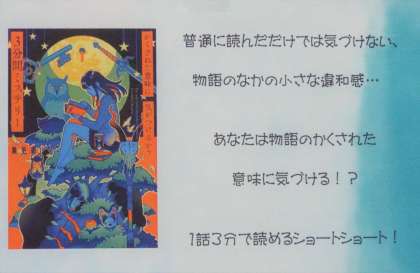 かくされた意味に気がつけるか？
3分間ミステリー
普通に読んだだけでは気づけない、
物語のなかの小さな違和感…
あなたは物語のかくされた
意味に気づける！？
1話3分で読めるショートショート！